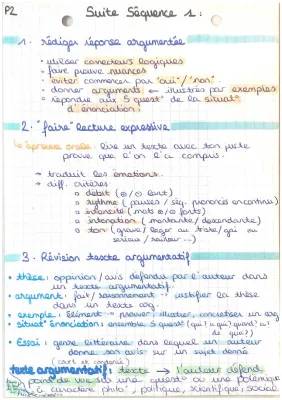 P2
Suite Séquence 1 :
1. rédiger réponse argumentée
• utiliser connecteurs logiques
• faire preuve nuances
• éviter commencer par "oui" / "non".
• donner arguments ← illustrés par exemples
• répondre aux 5 quest° de la situat°
d'énonciation.
2. "faire" lecture expressive
épreuve orale : lire un texte avec ton juste
prouve que l'on l'a compris.
→ traduit les émotions.
→ diff. critères
débit (⊕/⊖ lent)
rythme (pauses / seg. prononcé en continu)
intensité (mots ⊕/⊖ forts)
intonation (montante/descendante)
ton (grave/léger ou triste/gai ou
sérieux/rieur ...)
3. Révision texte argumentatif
• thèse : oppinion / avis défendu par l'auteur dans
un texte argumentatif.
• argument : fait / raisonnement → justifier la thèse
dans un texte arg.
• exemple : élément → prouver, illustrer, concrétiser un arg
• situat° énonciation : ensemble 5 quest° (qui ? à qui ? quand ? où ?
de quoi ?)
• Essai : genre littéraire dans lequel un auteur
donne son avis sur un sujet donné
texte argumentatif : texte → l'auteur défend
point de vue sur une quest° ou une polémique
à caractère philo, politique, scientifique, social